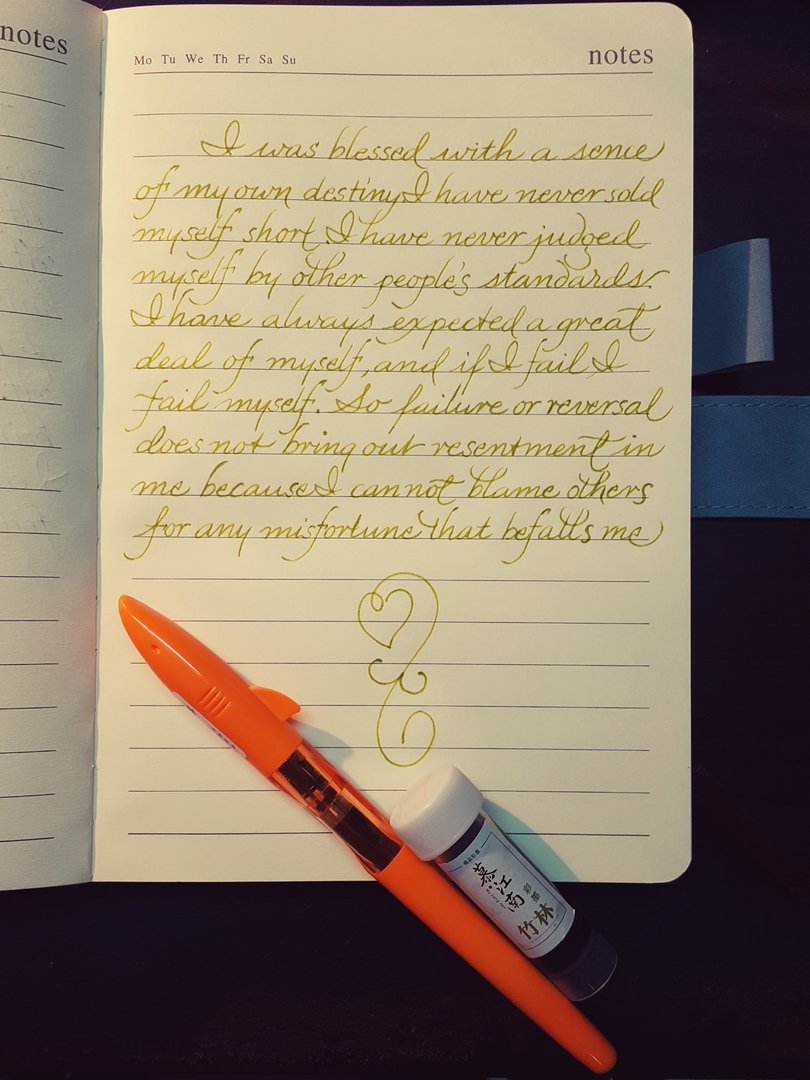 notes
Mo Tu We Th Fr Sa Su
notes
I was blessed with a sence
of my own destiny. I have never sold
myself short. I have never judged
myself by other people's standards.
I have always expected a great
deal of myself, and if I fail I
fail myself. So failure or reversal
does not bring out resentment in
me because I cannot blame others
for any misfortune that befall's me
慕江南
彩墨
竹林